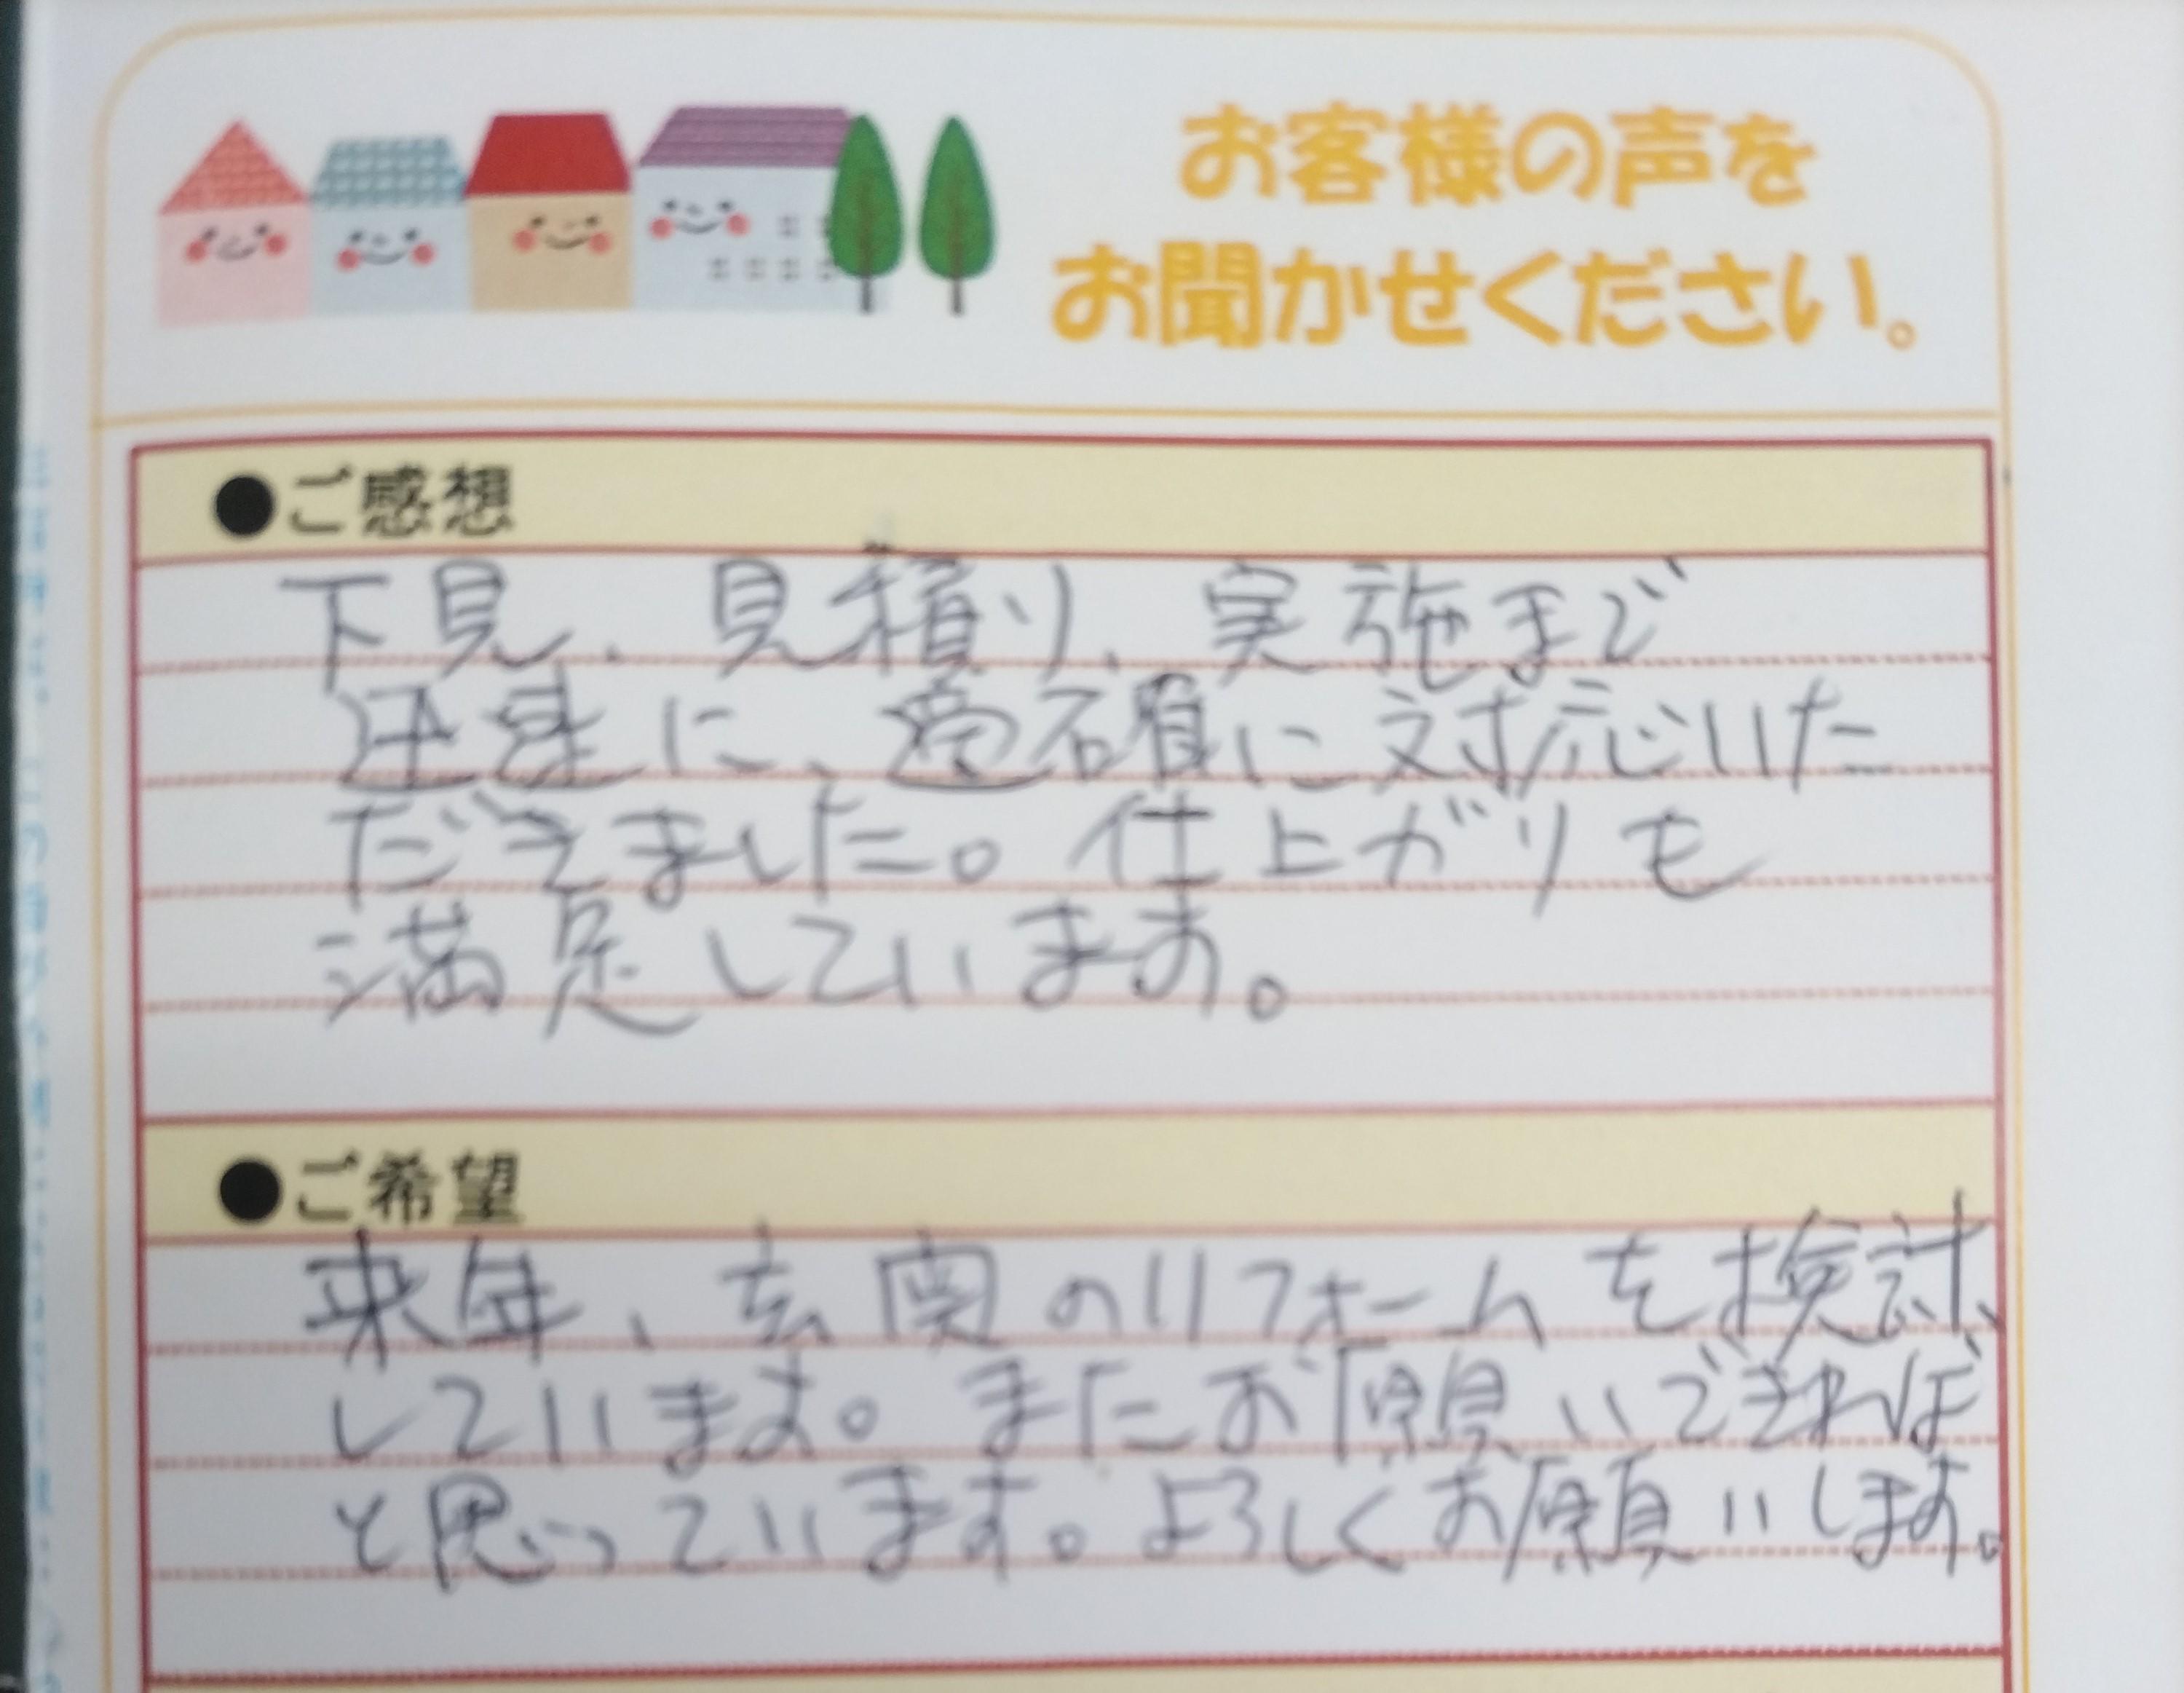 お客様の声を
お聞かせください。
●ご感想
下見、見積り、実施まで
迅速に、適確に対応いた
だきました。仕上がりも
満足しています。
●ご希望
来年、玄関のリフォームを検討
しています。またお願いできれば
と思っています。よろしくお願いします。